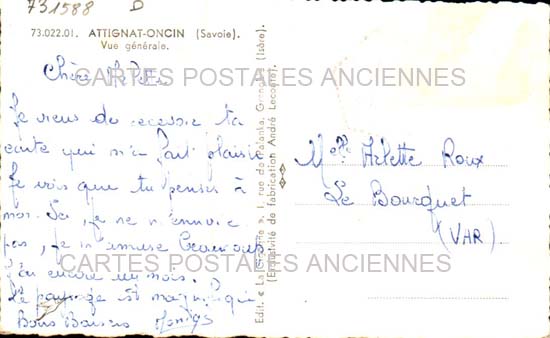 731588 D
73.022.01. ATTIGNAT-ONCIN (Savoie).
Vue générale.
Chère
CARTES POSTALES ANCIENNES
Je viens de recevoir ta
carte qui m'a fait plaisir
Je vois que tu penses à
moi. Ici, je ne m'ennuie
pas, je m'amuse beaucoup
J'ai encore un mois.
Le paysage est magnifique
Bons Baisers
CARTES POSTALES ANCIENNES
Edit. « La Cigogne », 1, rue de Palanka, Grenoble (Isère).
(Exclusivité de fabrication André Leconte).
Melle Arlette Roux
Le Bourguet
(VAR)